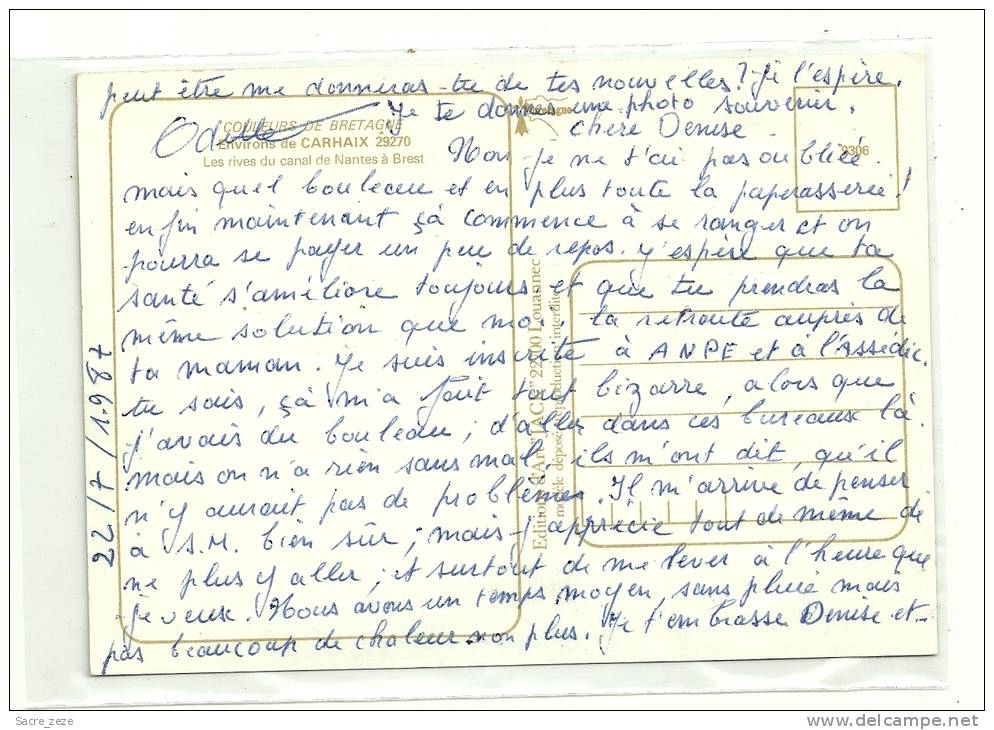 peut être me donneras-tu de tes nouvelles? Je l'espère.
Je te donnes une photo souvenir.
Odette
COULEURS DE BRETAGNE
Environs de CARHAIX 29270
Les rives du canal de Nantes à Brest
9306
chère Denise -
Non je ne t'ai pas oubliée.
mais quel bouleau et en plus toute la paperasserie!
enfin maintenant çà commence à se ranger et on
pourra se payer un peu de repos. J'espère que ta
santé s'améliore toujours et que tu prendras la
même solution que moi. la retraite auprès de
ta maman. Je suis inscrite à ANPE et à l'Assédic.
tu sais, çà m'a fait tout bizarre, alors que
j'avais du bouleau; d'aller dans ces bureaux là.
mais on n'a rien sans mal, ils m'ont dit, qu'il
n'y aurait pas de problèmes. Il m'arrive de penser
à S.M. bien sûr; mais j'apprécie tout de même de
ne plus y aller; et surtout de me lever à l'heure que
je veux. Nous avons un temps moyen, sans pluie mais
pas beaucoup de chaleur non plus. Je t'embrasse Denise et -
22/7/1987
Editions d'Art "JACK" 22700 Louannec
modèle déposé reproduction interdite
Sacre_zeze
www.delcampe.net